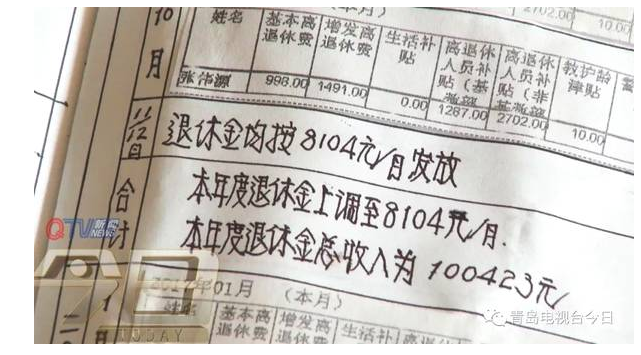 (本月) 2702.00 10.00
10月 姓名 基本离退休费 增发离退休费 生活补贴 离退休人员补贴(基 离退休人员补贴(非 教护龄津贴
998.00 1491.00 0.00 1267.00 2702.00 10.00
退休金均按8104元/月发放
合计
本年度退休金上调至8104元/月.
本年度退休金总收入为100423元/
QTV 新闻 NEWS
今日
TODAY
年01月 (本月)
1月 姓名 基本离退休费 增发离退休费 生活补 离退休 离退休 教护龄
青岛电视台今日